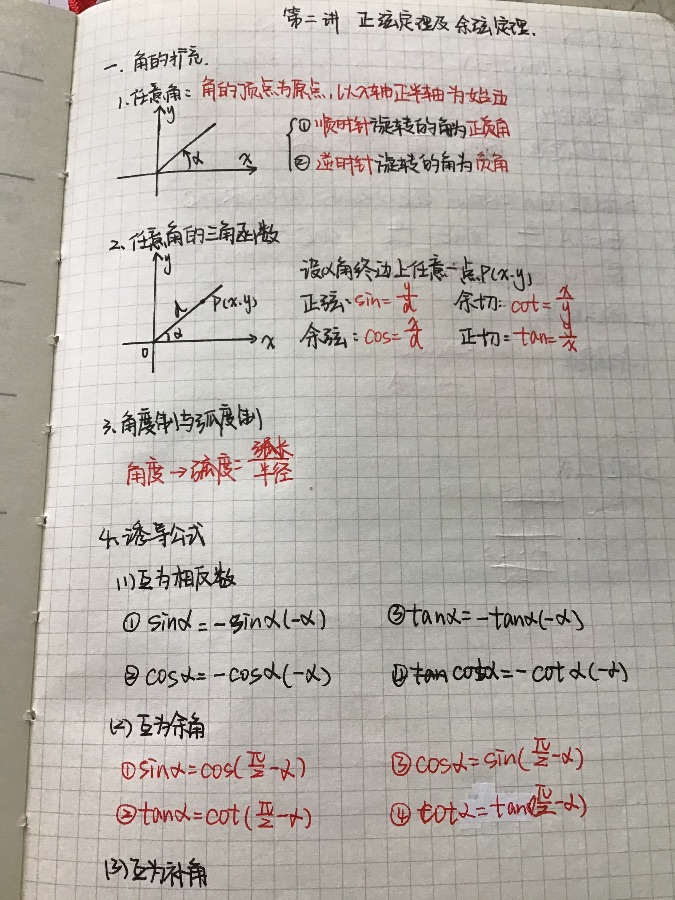 第二讲 正弦定理及余弦定理.
一. 角的扩充.
1.任意角: 角的顶点为原点,以x轴正半轴为始边
y
α x
①顺时针旋转的角为正负角
②逆时针旋转的角为负角
2、任意角的三角函数
y
d P(x,y)
α
O x
设α角终边上任意一点P(x,y)
正弦:sin=y/d 余切:cot=x/y
余弦:cos=x/d 正切:tan=y/x
3、角度制与弧度制
角度→弧度=弧长/半径
4、诱导公式
(1)互为相反数
①sinα=-sinα(-α) ③tanα=-tanα(-α)
②cosα=-cosα(-α) ④cotα=-cotα(-α)
(2)互为余角
①sinα=cos(π/2-α) ③cosα=sin(π/2-α)
②tanα=cot(π/2-α) ④cotα=tan(π/2-α)
(3)互为补角